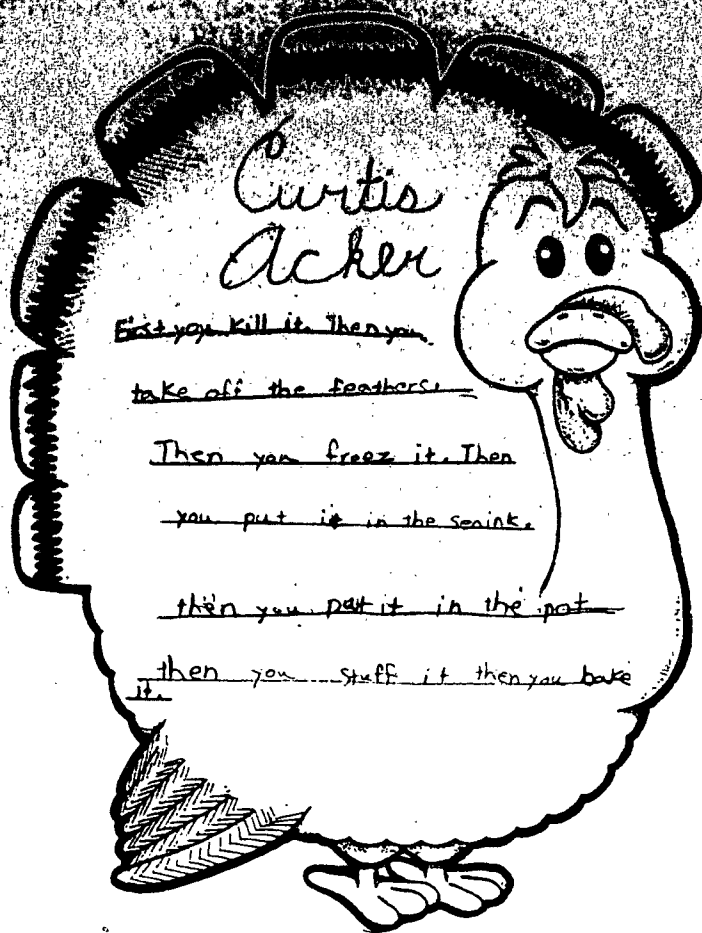 Curtis
Acker
First you kill it. Then you
take off the feathers.
Then you freez it. Then
you put it in the senink.
then you put it in the pot
then you stuff it then you bake
it.